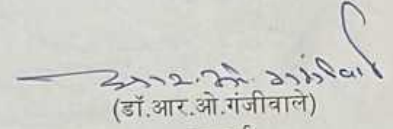 आर.ओ. गंजीवाले
(डॉ.आर.ओ.गंजीवाले)